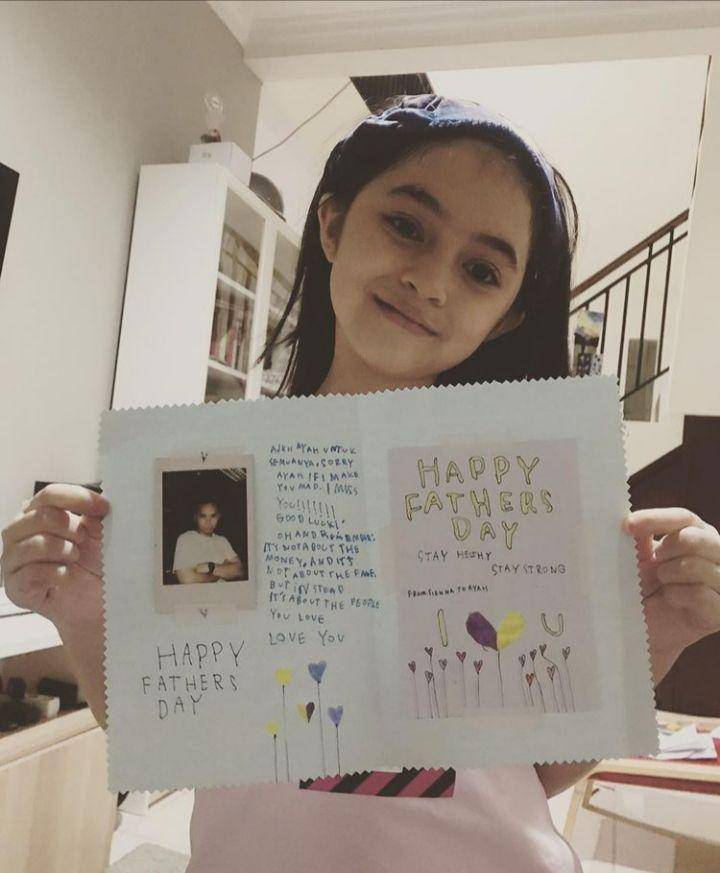 AYAH UNTUK
SEMUANYA, SORRY
AYAH IF I MAKE
YOU MAD. I MISS
YOU!!!!!!!!
GOOD LUCK!
OH AND REMEMBER
IT'S NOT ABOUT THE
MONEY, AND IT'S
NOT ABOUT THE FAME
BUT INSTEAD
IT'S ABOUT THE PEOPLE
YOU LOVE
LOVE YOU
HAPPY
FATHERS
DAY
HAPPY
FATHERS
DAY
STAY HELTHY
STAY STRONG
FROM SIENNA TO AYAH
I U